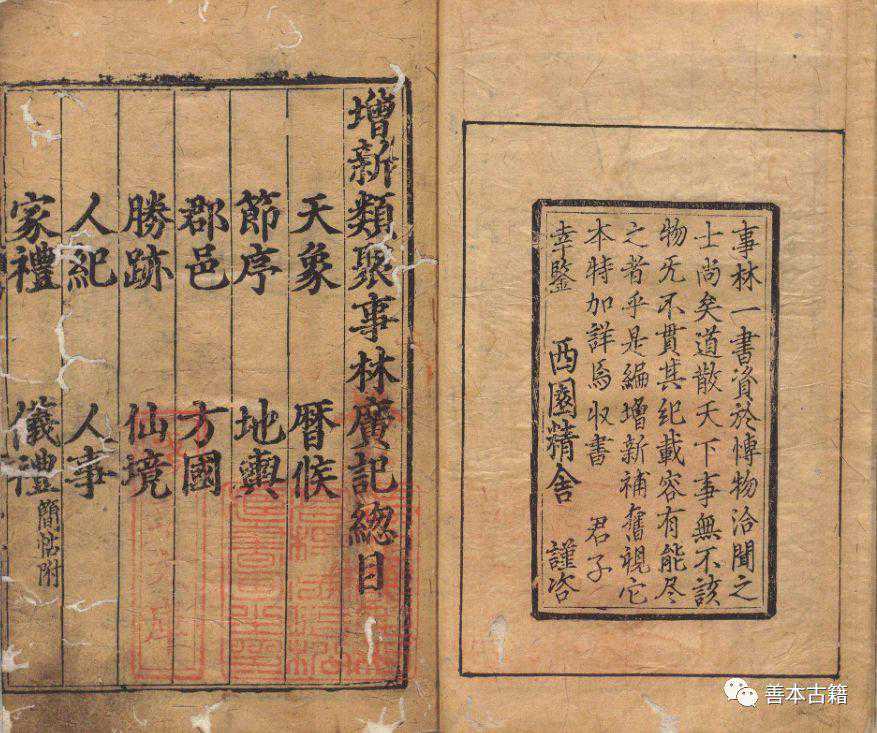 事林一書資於愽物洽聞之
士尚矣道散天下事無不該
物旡不貫其紀載容有能尽
之者乎是編增新補舊視它
本特加詳焉収書 君子
幸鑒 西園精舍 謹咨
增新類聚事林廣記總目
天象 暦候
節序 地輿
郡邑 方國
勝跡 仙境
人紀 人事
家禮 儀禮簡帖附
善本古籍